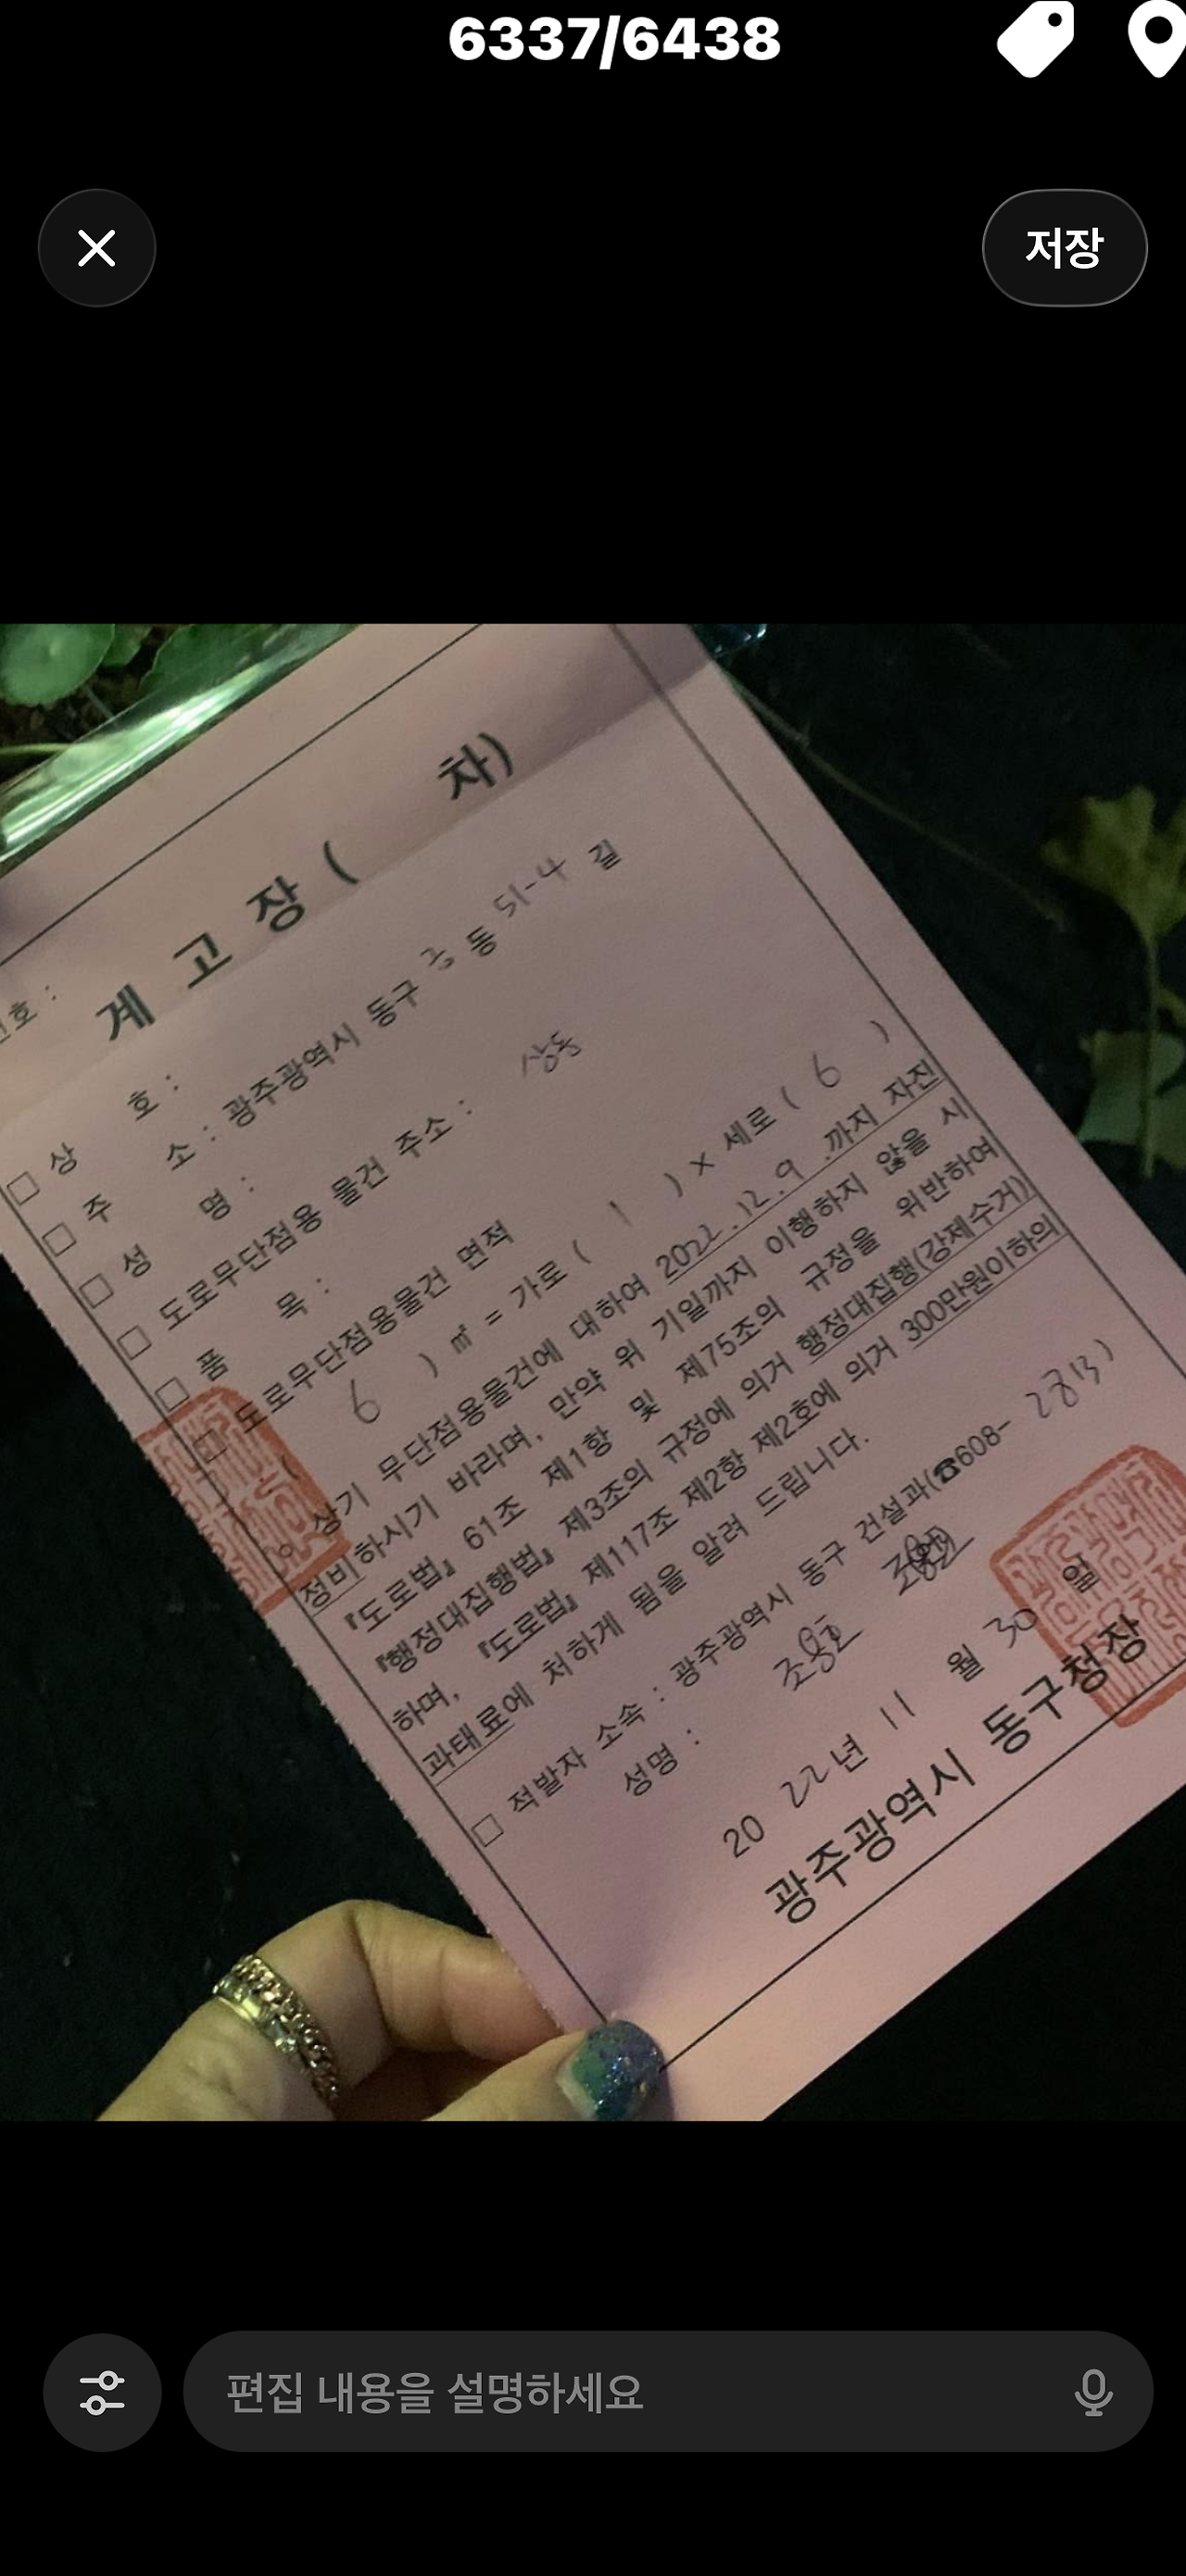 6337/6438
저장
계 고 장 ( 차)
호 :
□ 상 호 :
□ 주 소 : 광주광역시 동구 궁 동 51-4 길
□ 성 명 :
□ 도로무단점용 물건 주소 : 상동
□ 품 목 :
□ 도로무단점용물건 면적
( 6 ) ㎡ = 가로 ( 1 ) × 세로 ( 6 )
○ 상기 무단점용물건에 대하여 2022.12.9 .까지 자진
정비하시기 바라며, 만약 위 기일까지 이행하지 않을 시
『도로법』 61조 제1항 및 제75조의 규정을 위반하여
『행정대집행법』 제3조의 규정에 의거 행정대집행(강제수거)
하며, 『도로법』 제117조 제2항 제2호에 의거 300만원이하의
과태료에 처하게 됨을 알려 드립니다.
□ 적발자 소속 : 광주광역시 동구 건설과(☎608- 2813)
성명 : 조용호
20 22년 11 월 30 일
광주광역시 동구청장
편집 내용을 설명하세요